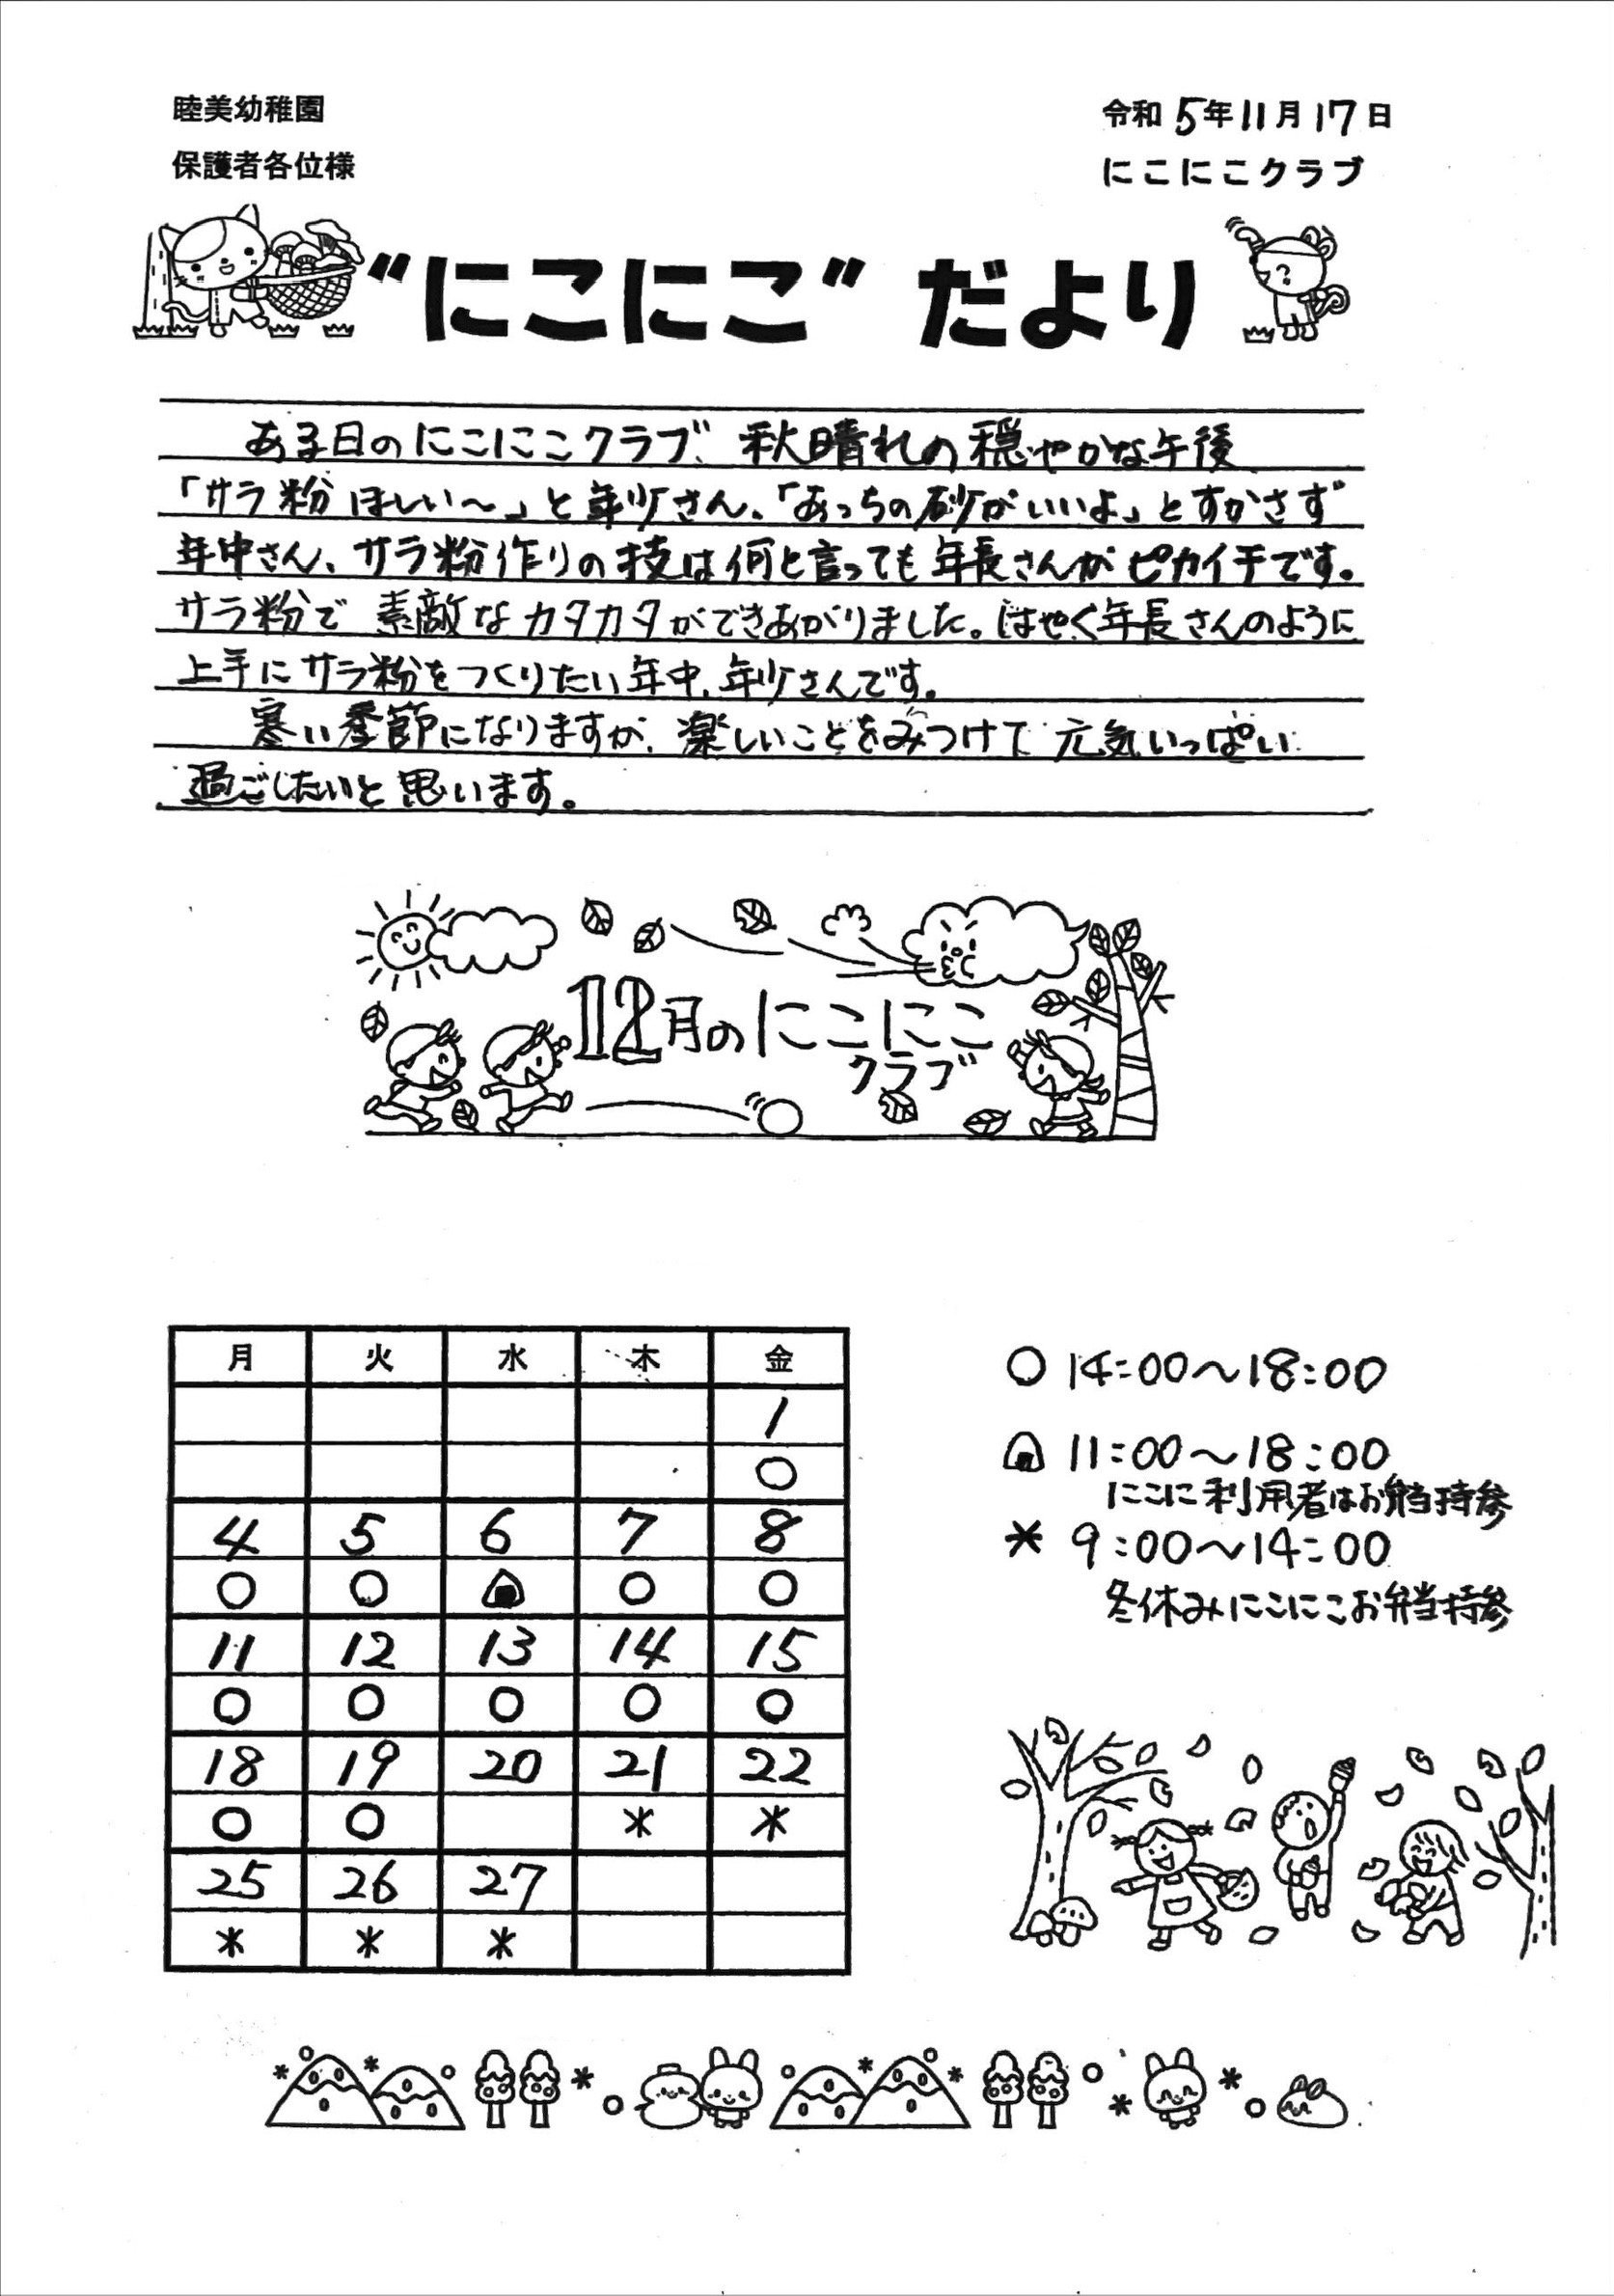 睦美幼稚園
保護者各位様
令和5年11月17日
にこにこクラブ
"にこにこ" だより
ある日のにこにこクラブ、秋晴れの穏やかな午後
「サラ粉ほしい～」と年少さん、「あっちの砂がいいよ」とすかさず
年中さん、サラ粉作りの技は何と言っても年長さんがピカイチです。
サラ粉で素敵なカタカタができあがりました。はやく年長さんのように
上手にサラ粉をつくりたい年中、年少さんです。
寒い季節になりますが、楽しいことをみつけて元気いっぱい
過ごしたいと思います。
12月のにこにこ
クラブ
月 火 水 木 金
1
○
4 5 6 7 8
○ ○ 🍙 ○ ○
11 12 13 14 15
○ ○ ○ ○ ○
18 19 20 21 22
○ ○ * *
25 26 27
* * *
○ 14:00～18:00
🍙 11:00～18:00
にこに利用者はお弁当持参
* 9:00～14:00
冬休みにこにこお弁当持参